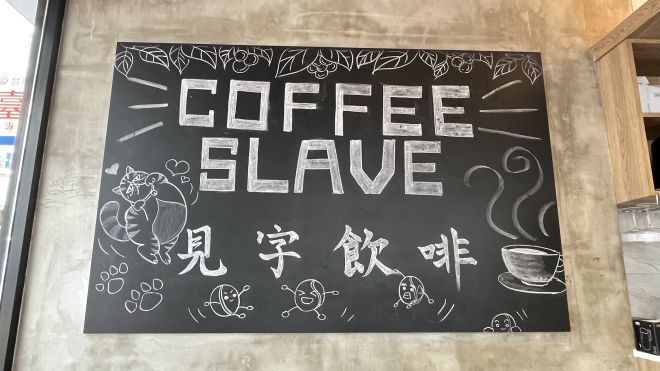 COFFEE
SLAVE
見字飲啡